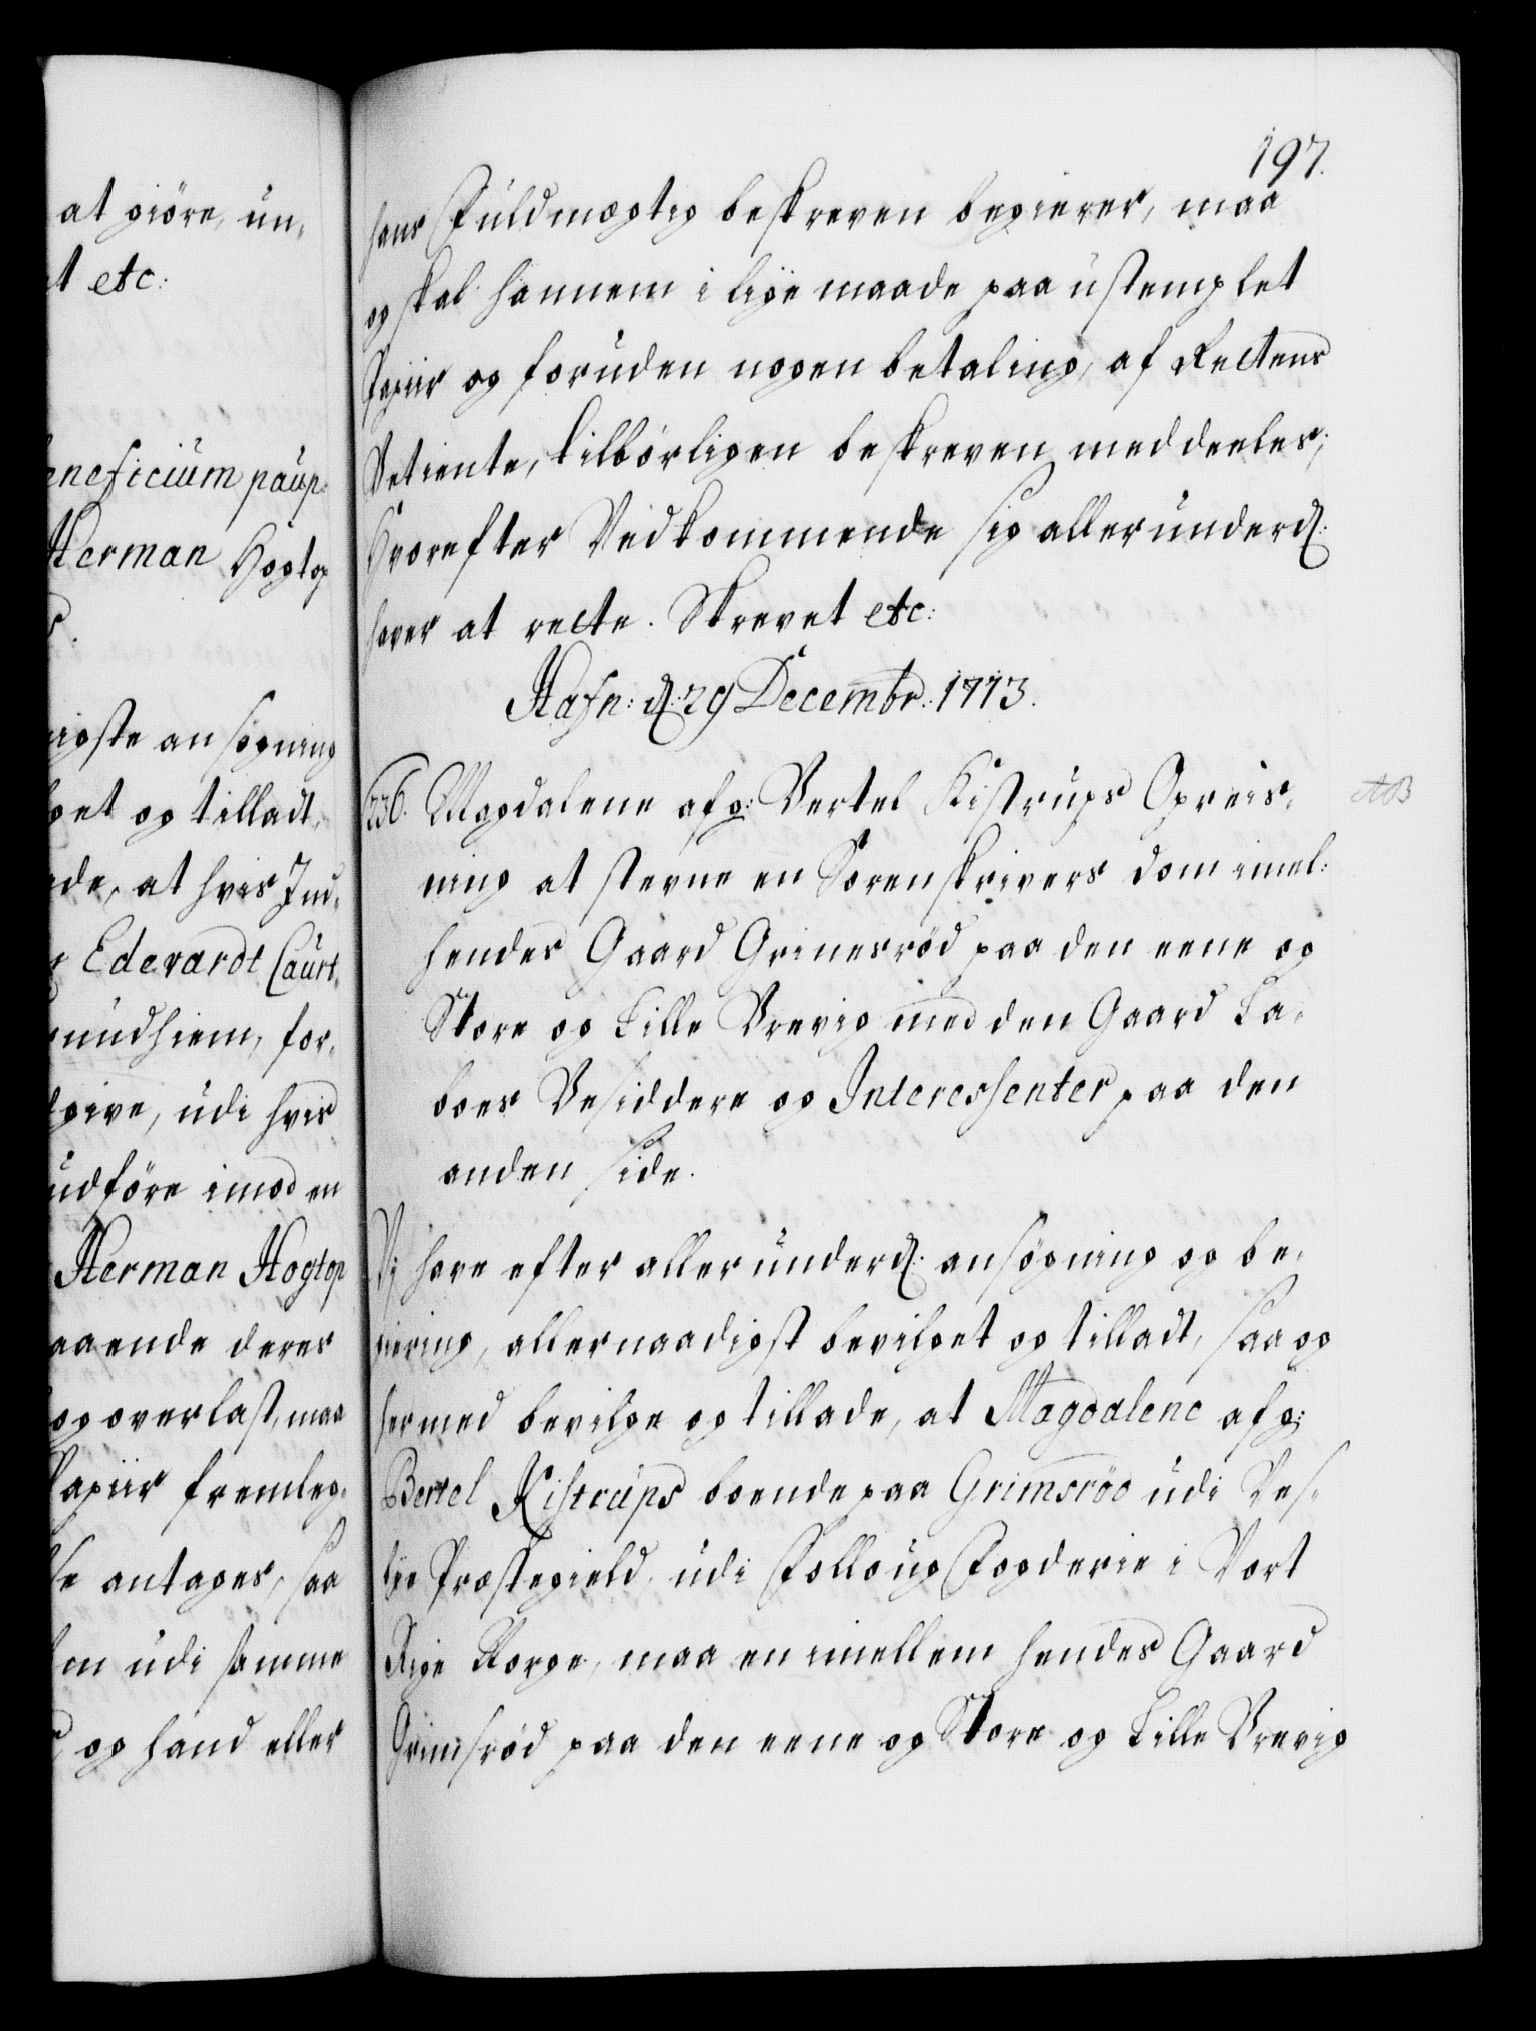 at giöre, un,
t etc:
eneficium paup:
Herman Hogtop
igste ansøgning
get og tilladt,
de, at hvis Ind,
Edevardt Caurt,
undhiem, for,
give, udi hvis
udföre imod en
Herman Hogtop
aaende deres
og overlast, maa
Papiir fremleg,
se antages, saa
em udi samme
og hand eller
197.
hans Fuldmægtig beskreven begierer, maa
og skal hannem i lige maade paa ustemplet
Papiir og foruden nogen betaling, af Rettens
Betiente, tilbørligen beskreven meddeeles;
Hvorefter Vedkommende sig allerunderd:
haver at rette. Skrevet etc:
Hafn: d: 29 Decembr: 1773.
236. Magdalene afg: Bertel Kistrups Opreis,
ning at stevne en Sorenskrivers Dom imel:
hendes Gaard Grimesrød paa den eene og
Store og Lille Brevig med den Gaard La,
boes Besiddere og Interessenter paa den
anden side.
AB
Vi have efter allerunderd: ansøgning og be,
giering, allernaadigst bevilget og tilladt, saa og
hermed bevilge og tillade, at Magdalene afg:
Bertel Kistrups boende paa Grimsröd udi Ves,
bye Præstegield, udi Folloug Fogderie i Vort
Rige Norge, maa en imellem hendes Gaard
Grimsrød paa den eene og Store og Lille Brevig